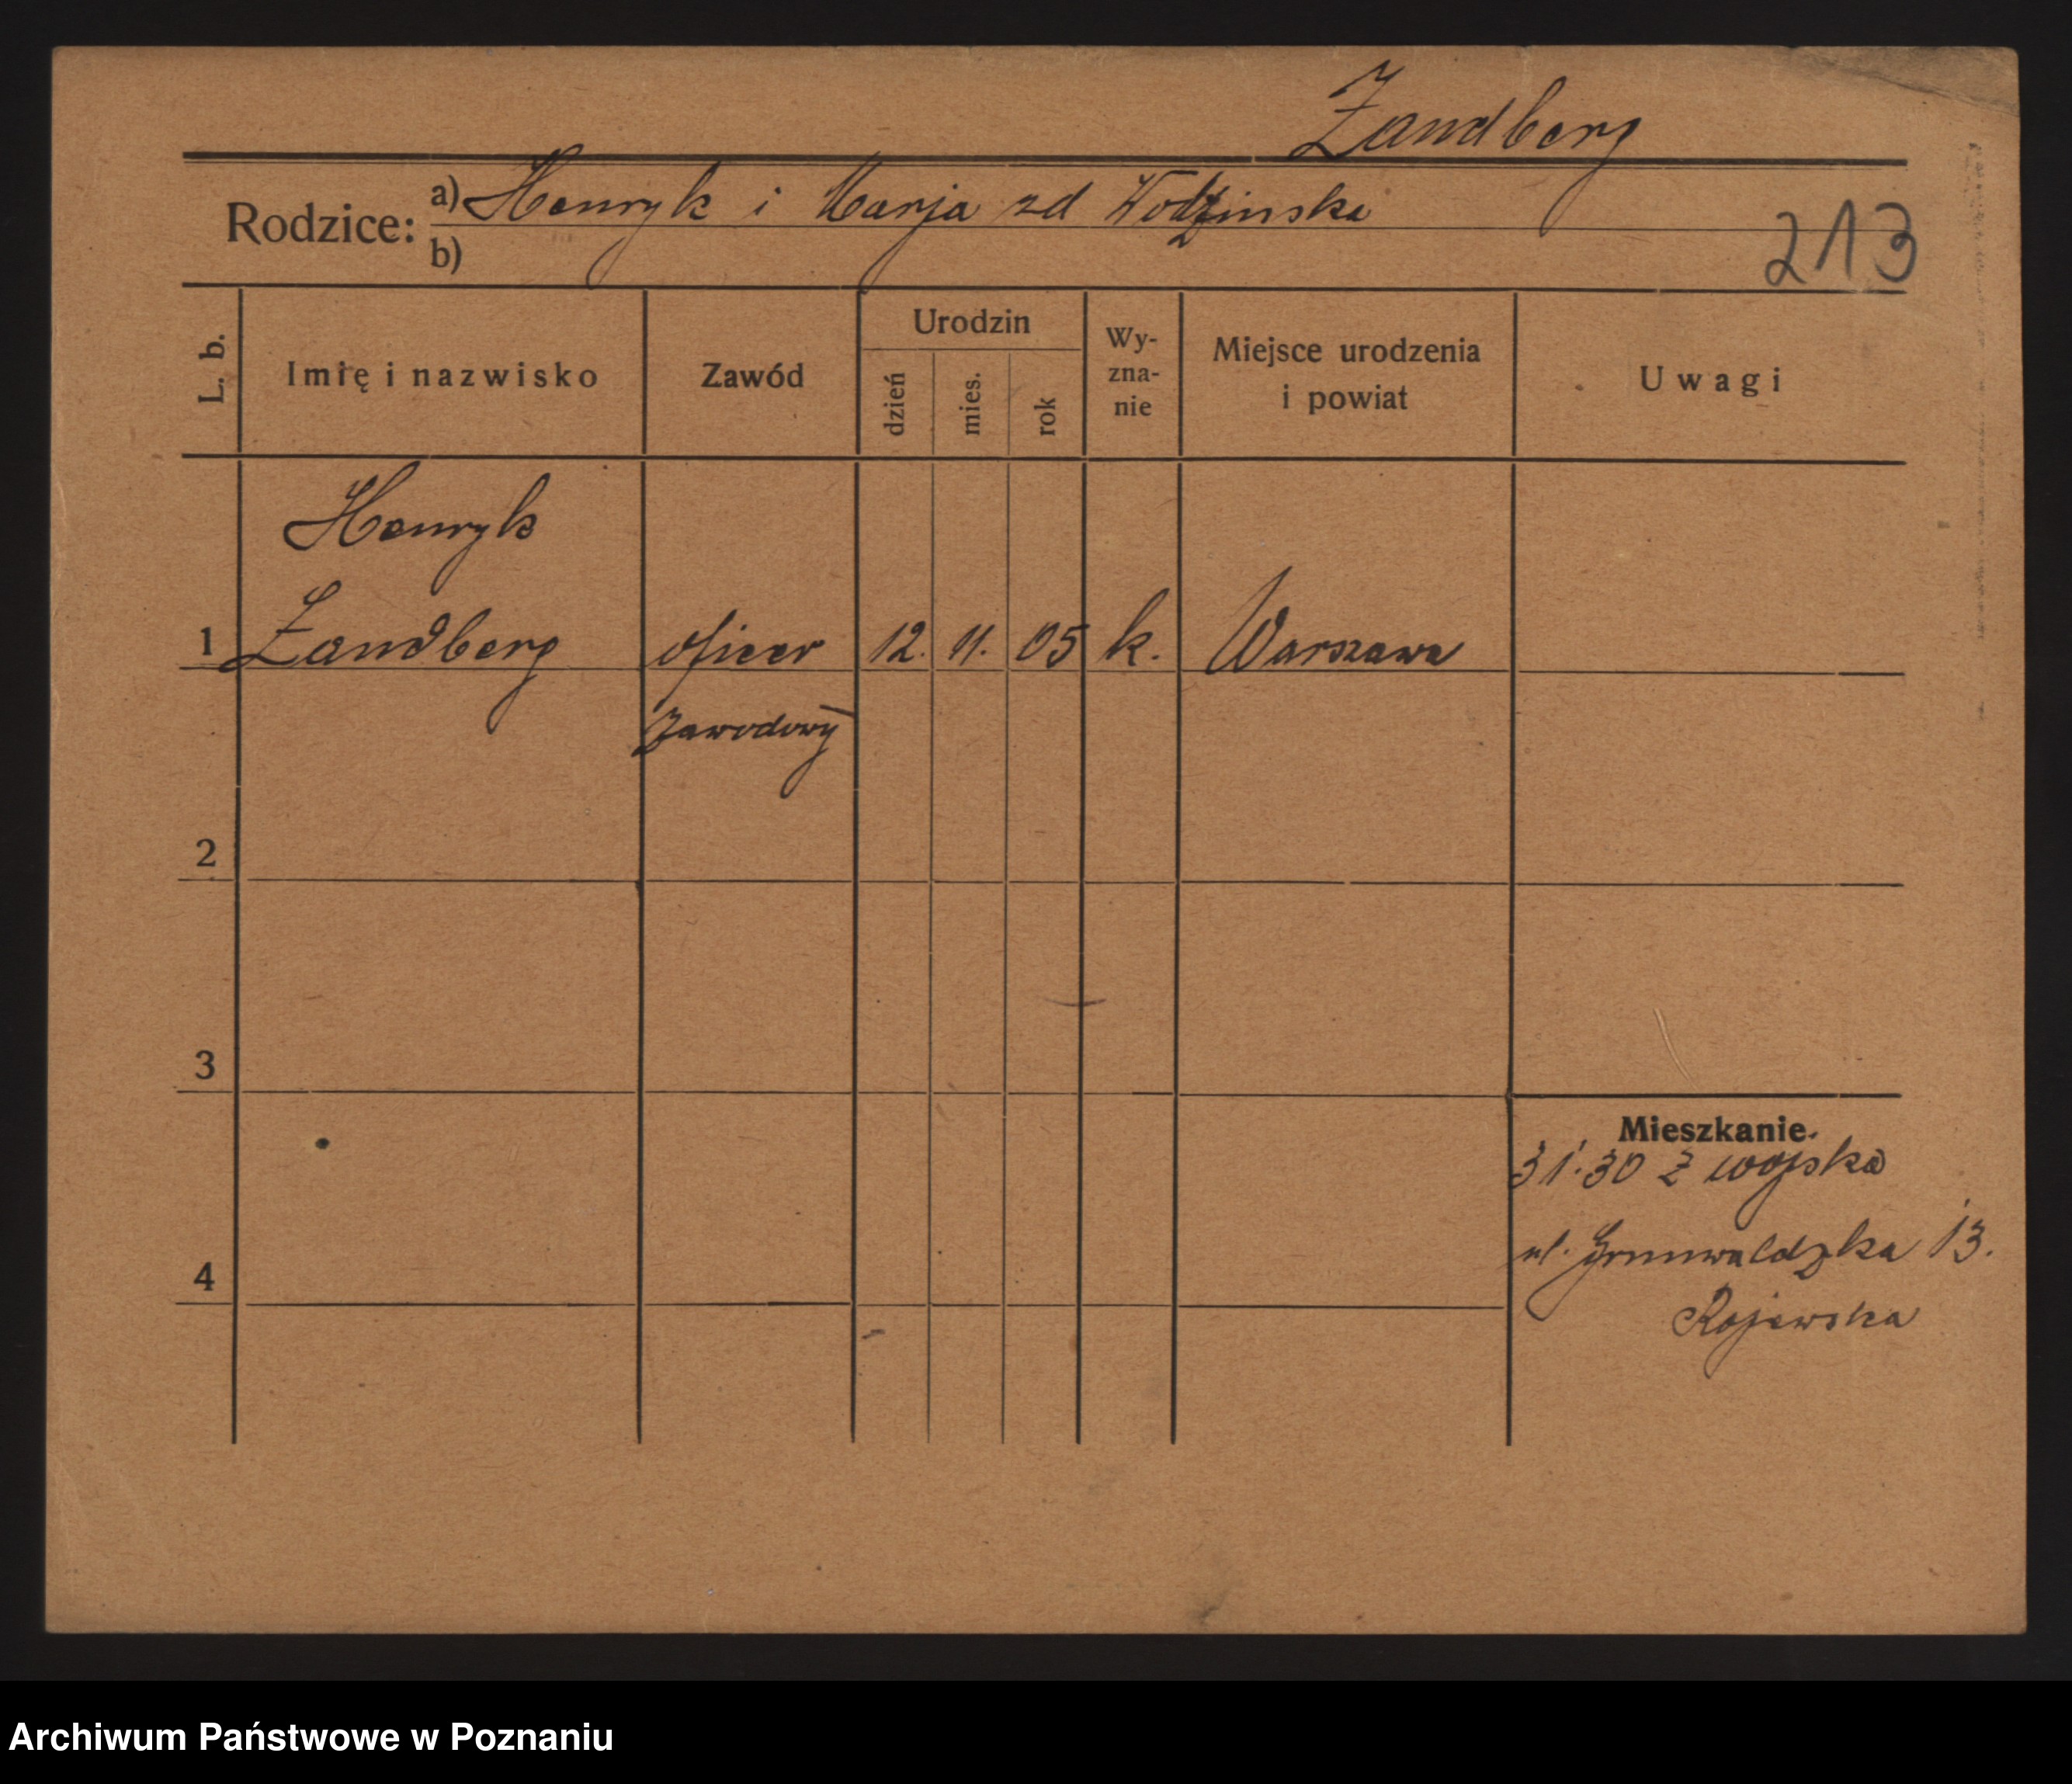 Zandberg
Rodzice: a) Henryk i Marja zd Wodzinska
b)
213
L. b. Imię i nazwisko Zawód Urodzin dzień mies. rok Wy-zna-nie Miejsce urodzenia i powiat Uwagi
Henryk
1 Zandberg oficer 12. 11. 05 k. Warszawa
zawodowy
2
3
Mieszkanie.
31.30 z wojska
ul. Grunwaldzka 13.
4
Rajewska
Archiwum Państwowe w Poznaniu